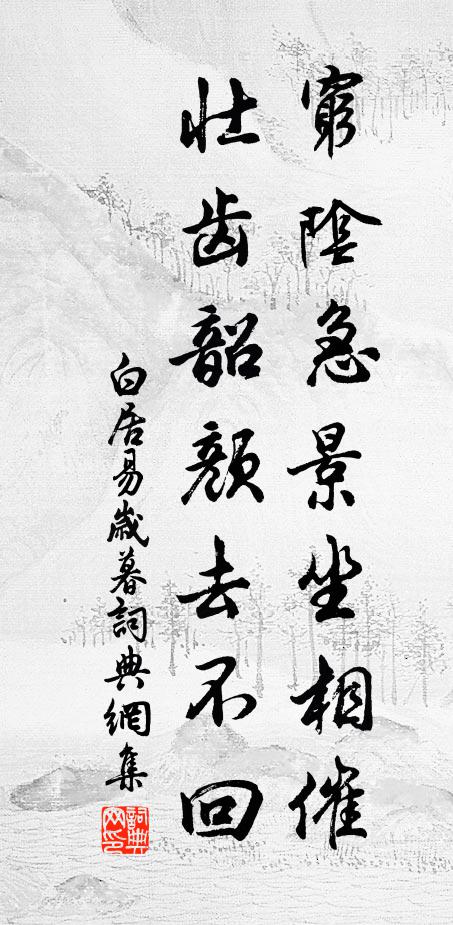 窮陰急景坐相催
壯齒韶顏去不回
白居易歲暮詞典網集
詞典网印